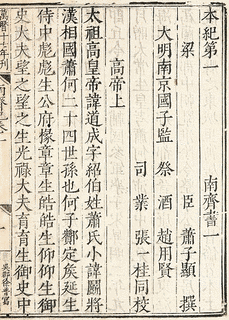 本紀第一　南齊書一
梁　臣蕭子顯撰
大明南京國子監祭酒趙用賢
司業張一桂同校
高帝上
太祖高皇帝諱道成字紹伯姓蕭氏小諱鬬將
漢相國蕭何二十四世孫也何子酇定侯延生
侍中彪彪生公府掾章章生皓皓生仰仰生御
史大夫望之望之生光祿大夫育育生御史中
萬曆十七年刊
南齊書卷一